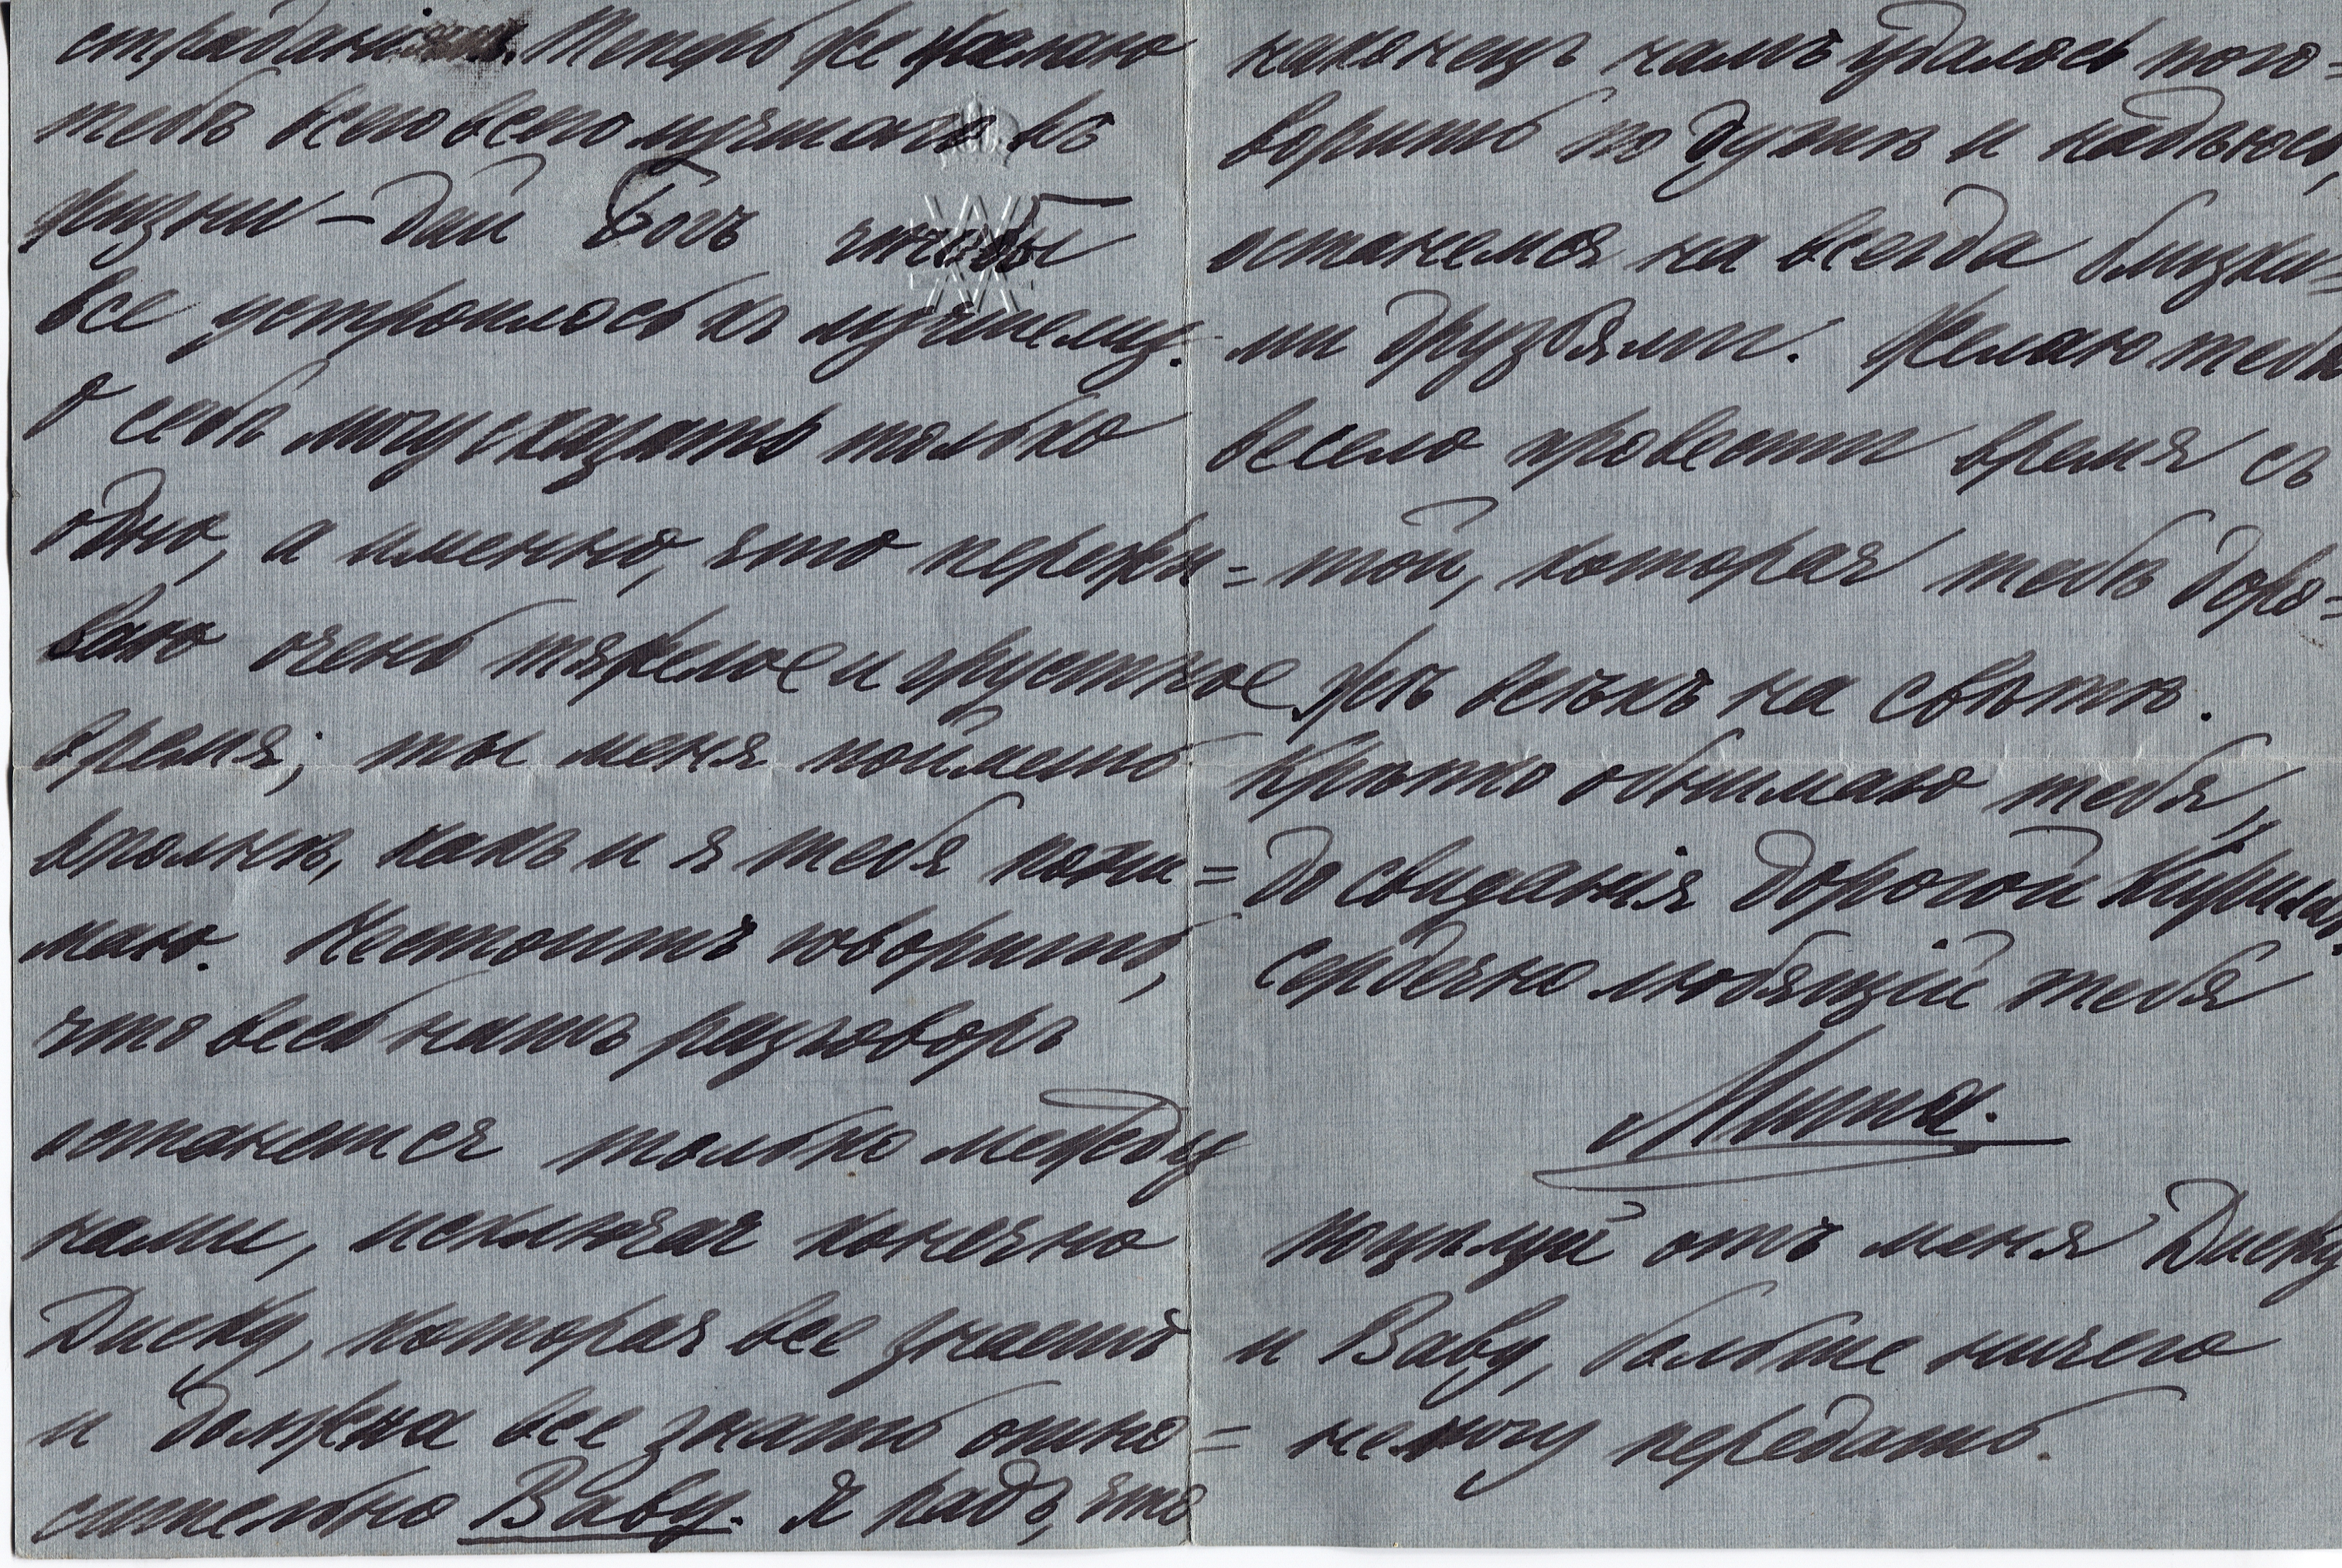 страданія. Теперь же желаю
тебѣ всего всего лучшаго въ
жизни – дай Богъ чтобы
все устроилось къ лучшему.
О себѣ могу сказать только
одно, а именно, что пережи=
ваю очень тяжелое и грустное
время; ты меня поймешь
вполнѣ, какъ и я тебя пони=
маю. Нестоитъ говорить,
что весь нашъ разговоръ
останется только между
нами, исключая конечно
Диску, которая все знаетъ
и должна все знать отно=
сительно Baby. Я радъ, что
наконецъ намъ удалось пого=
ворить по душѣ и надѣюсь,
останемся на всегда близки=
ми друзьями. Желаю тебѣ
весело провести время съ
той, которая тебѣ доро=
же всѣхъ на свѣтѣ.
Крѣпко обнимаю тебя,
до свиданія дорогой Кириллъ.
сердечно любящій тебя
Миша.
Поцѣлуй отъ меня Диску
и Baby, больше ничего
не могу передать.